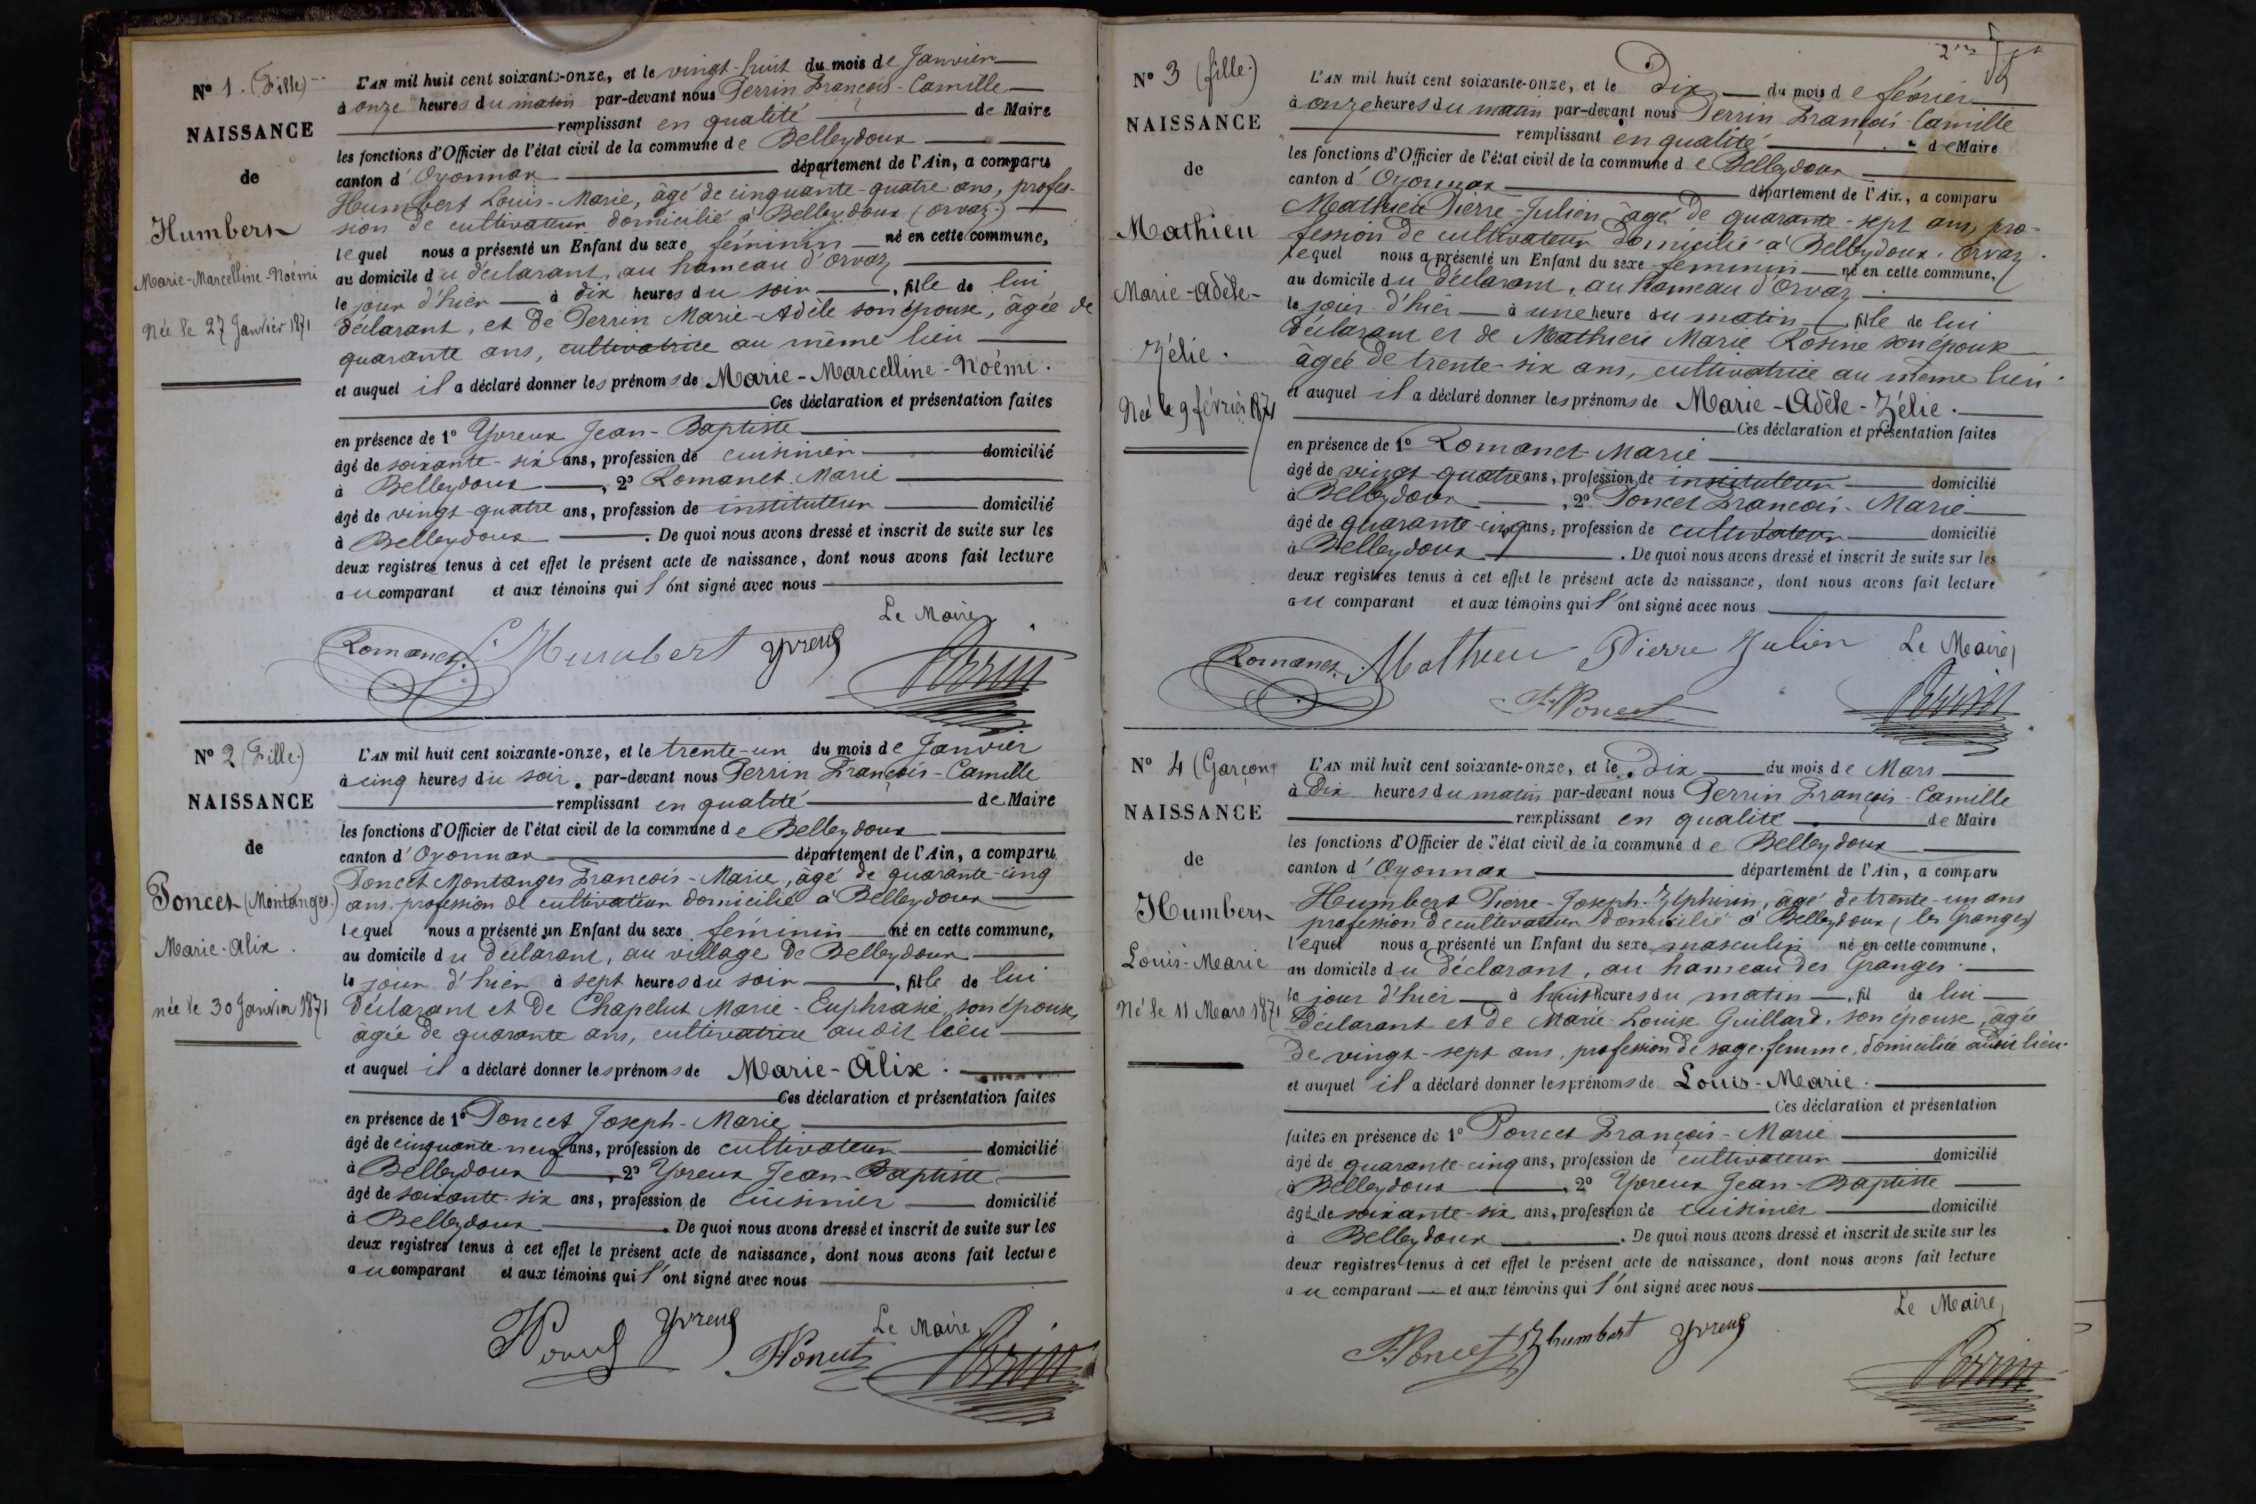 N° 1. (Fille)
NAISSANCE
de
Humbert
Marie-Marcelline-Noémi
Née le 27 Janvier 1871
L'AN mil huit cent soixante-onze, et le vingt-huit du mois de Janvier
à onze heures du matin par-devant nous Perrin François-Camille
remplissant en qualité de Maire
les fonctions d'Officier de l'état civil de la commune de Belleydoux
canton d'Oyonnax département de l'Ain, a comparu
Humbert Louis-Marie, âgé de cinquante-quatre ans, profes-
sion de cultivateur domicilié à Belleydoux (Orvaz)
lequel nous a présenté un Enfant du sexe féminin né en cette commune,
au domicile du déclarant, au hameau d'Orvaz
le jour d'hier à dix heures du soir, fille de lui
déclarant, et de Perrin Marie-Adèle son épouse, âgée de
quarante ans, cultivatrice au même lieu
et auquel il a déclaré donner les prénoms de Marie-Marcelline-Noémi.
Ces déclaration et présentation faites
en présence de 1° Yvreux Jean-Baptiste
âgé de soixante-six ans, profession de cuisinier domicilié
à Belleydoux, 2° Romanet Marie
âgé de vingt-quatre ans, profession de instituteur domicilié
à Belleydoux. De quoi nous avons dressé et inscrit de suite sur les
deux registres tenus à cet effet le présent acte de naissance, dont nous avons fait lecture
au comparant et aux témoins qui l'ont signé avec nous
Le Maire,
Romanet. L. Humbert Yvreux Perrin
N° 2 (Fille)
NAISSANCE
de
Poncet (Montanges.)
Marie-Alix.
née le 30 Janvier 1871
L'AN mil huit cent soixante-onze, et le trente-un du mois de Janvier
à cinq heures du soir. par-devant nous Perrin François-Camille
remplissant en qualité de Maire
les fonctions d'Officier de l'état civil de la commune de Belleydoux
canton d'Oyonnax département de l'Ain, a comparu
Poncet Montanges François-Marie, âgé de quarante-cinq
ans, profession de cultivateur domicilié à Belleydoux
lequel nous a présenté un Enfant du sexe féminin né en cette commune,
au domicile du déclarant, au village de Belleydoux
le jour d'hier à sept heures du soir, fille de lui
déclarant et de Chapelut Marie-Euphrasie, son épouse,
âgée de quarante ans, cultivatrice au dit lieu
et auquel il a déclaré donner les prénoms de Marie-Alix.
Ces déclaration et présentation faites
en présence de 1° Poncet Joseph-Marie
âgé de cinquante-neuf ans, profession de cultivateur domicilié
à Belleydoux, 2° Yvreux Jean-Baptiste
âgé de soixante-six ans, profession de cuisinier domicilié
à Belleydoux. De quoi nous avons dressé et inscrit de suite sur les
deux registres tenus à cet effet le présent acte de naissance, dont nous avons fait lecture
au comparant et aux témoins qui l'ont signé avec nous
Le Maire,
Poncet Yvreux Poncet Perrin
N° 3 (fille.)
NAISSANCE
de
Mathieu
Marie-Adèle-
Zélie.
Née le 9 février 1871
L'AN mil huit cent soixante-onze, et le Dix du mois de février
à onze heures du matin par-devant nous Perrin François-Camille
remplissant en qualité de Maire
les fonctions d'Officier de l'état civil de la commune de Belleydoux
canton d'Oyonnax département de l'Ain, a comparu
Mathieu Pierre-Julien, âgé de quarante-sept ans, pro-
fession de cultivateur domicilié à Belleydoux. Orvaz.
lequel nous a présenté un Enfant du sexe féminin né en cette commune,
au domicile du déclarant, au hameau d'Orvaz
le jour d'hier à une heure du matin, fille de lui
déclarant et de Mathieu Marie Rosine son épouse
âgée de trente-six ans, cultivatrice au même lieu.
et auquel il a déclaré donner les prénoms de Marie-Adèle-Zélie.
Ces déclaration et présentation faites
en présence de 1° Romanet Marie
âgé de vingt-quatre ans, profession de instituteur domicilié
à Belleydoux, 2° Poncet François-Marie
âgé de quarante-cinq ans, profession de cultivateur domicilié
à Belleydoux. De quoi nous avons dressé et inscrit de suite sur les
deux registres tenus à cet effet le présent acte de naissance, dont nous avons fait lecture
au comparant et aux témoins qui l'ont signé avec nous
Romanet. Mathieu Pierre Julien Le Maire,
Poncet Perrin
N° 4 (Garçon)
NAISSANCE
de
Humbert
Louis-Marie
Né le 11 Mars 1871
L'AN mil huit cent soixante-onze, et le Dix du mois de Mars
à Dix heures du matin par-devant nous Perrin François-Camille
remplissant en qualité de Maire
les fonctions d'Officier de l'état civil de la commune de Belleydoux
canton d'Oyonnax département de l'Ain, a comparu
Humbert Pierre-Joseph-Zéphirin, âgé de trente-un ans
profession de cultivateur domicilié à Belleydoux (les Granges)
lequel nous a présenté un Enfant du sexe masculin né en cette commune,
au domicile du déclarant, au hameau des Granges.
le jour d'hier à huit heures du matin, fil de lui
déclarant et de Marie-Louise Guillard, son épouse, âgée
de vingt-sept ans, profession de sage-femme, domiciliée audit lieu.
et auquel il a déclaré donner les prénoms de Louis-Marie.
Ces déclaration et présentation
faites en présence de 1° Poncet François-Marie
âgé de quarante-cinq ans, profession de cultivateur domicilié
à Belleydoux, 2° Yvreux Jean-Baptiste
âgé de soixante-six ans, profession de cuisinier domicilié
à Belleydoux. De quoi nous avons dressé et inscrit de suite sur les
deux registres tenus à cet effet le présent acte de naissance, dont nous avons fait lecture
au comparant et aux témoins qui l'ont signé avec nous
Le Maire,
Poncet Z humbert Yvreux Perrin